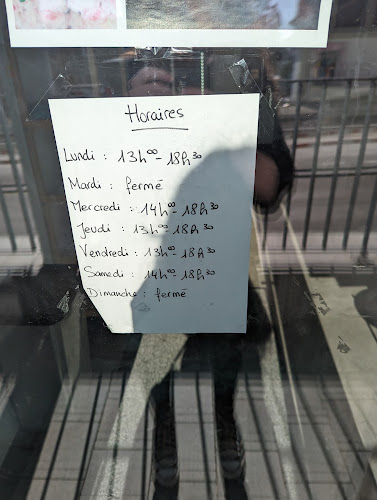 Horaires
Lundi : 13h00 - 18h30
Mardi : fermé
Mercredi : 14h00 - 18h30
Jeudi : 13h00 - 18h30
Vendredi : 13h00 - 18h30
Samedi : 14h00 - 18h30
Dimanche : fermé